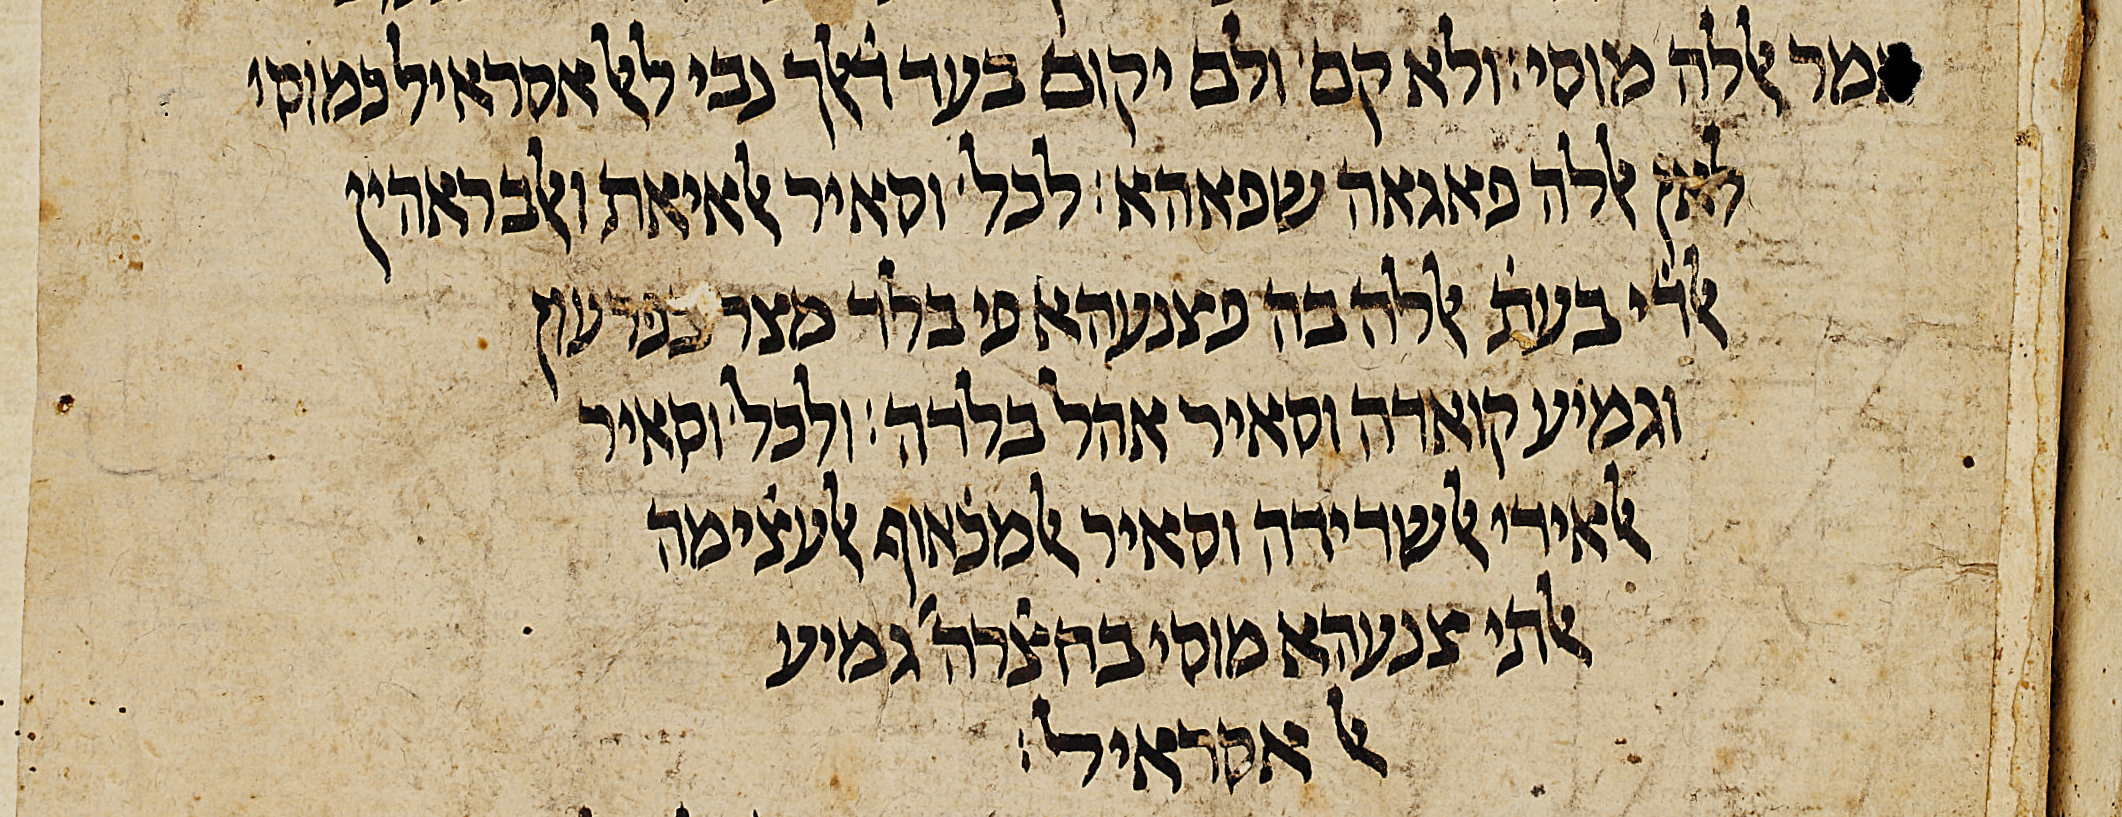 אמר אללה מוסי׃ ולא קם׳ ולם יקום בעד דׄאלך נבי לאל אסראיל כמוסי
לאן אללה פאגאה שפאהא׃ לכל׳ וסאיר אלאיאת ואלבראהין
אלדׄי בעתׄ אללה בה פצנעהא פי בלד מצר בפרעון
וגמיע קואדה וסאיר אהל בלדה׃ ולכל׳ וסאיר
אלאידי אלשדידה וסאיר אלמכׄאוף אלעצׄימה
אלתי צנעהא מוסי בחצׄרה׳ גמיע
אל אסראיל׃